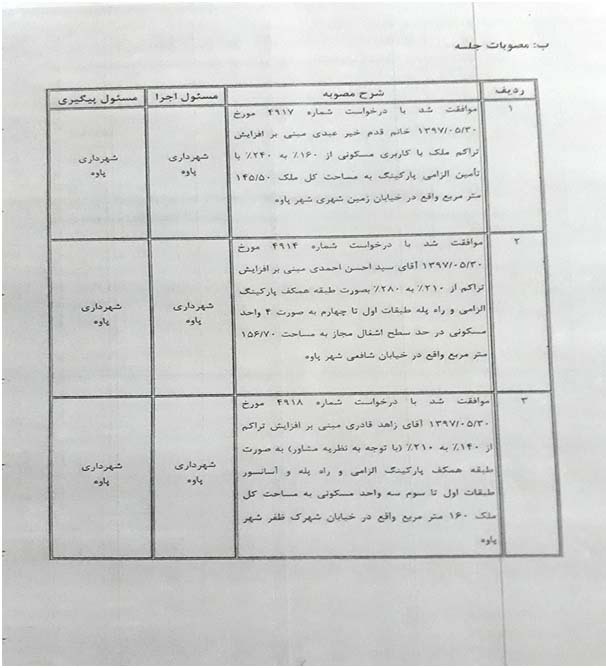 ب: مصوبات جلسه
ردیف شرح مصوبه مسئول اجرا مسئول پیگیری
۱
موافقت شد با درخواست شماره ۴۹۱۷ مورخ
۱۳۹۷/۰۵/۳۰ خانم قدم خیر عبدی مبنی بر افزایش
تراکم ملک با کاربری مسکونی از ۱۶۰٪ به ۲۴۰٪ با
تأمین الزامی پارکینگ به مساحت کل ملک ۱۴۵/۵۰
متر مربع واقع در خیابان زمین شهری شهر پاوه
شهرداری
پاوه
شهرداری
پاوه
۲
موافقت شد با درخواست شماره ۴۹۱۴ مورخ
۱۳۹۷/۰۵/۳۰ آقای سید احسن احمدی مبنی بر افزایش
تراکم از ۲۱۰٪ به ۲۸۰٪ بصورت طبقه همکف پارکینگ
الزامی و راه پله طبقات اول تا چهارم به صورت ۴ واحد
مسکونی در حد سطح اشغال مجاز به مساحت ۱۵۶/۷۰
متر مربع واقع در خیابان شافعی شهر پاوه
شهرداری
پاوه
شهرداری
پاوه
۳
موافقت شد با درخواست شماره ۴۹۱۸ مورخ
۱۳۹۷/۰۵/۳۰ آقای زاهد قادری مبنی بر افزایش تراکم
از ۱۴۰٪ به ۲۱۰٪ (با توجه به نظریه مشاور) به صورت
طبقه همکف پارکینگ الزامی و راه پله و آسانسور
طبقات اول تا سوم سه واحد مسکونی به مساحت کل
ملک ۱۶۰ متر مربع واقع در خیابان شهرک ظفر شهر
پاوه
شهرداری
پاوه
شهرداری
پاوه